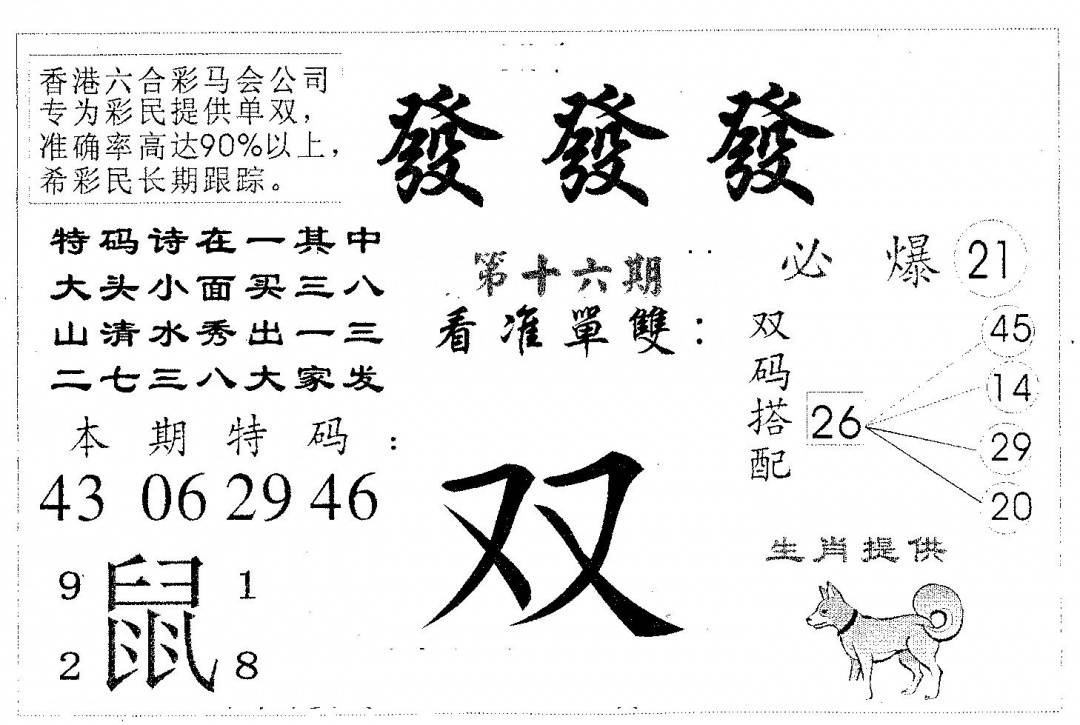 香港六合彩马会公司
专为彩民提供单双，
准确率高达90%以上，
希彩民长期跟踪。
發 發 發
特码诗在一其中
大头小面买三八
山清水秀出一三
二七三八大家发
第十六期
看准單雙：
双
必爆 21
双码搭配
26
45
14
29
20
本期特码：
43 06 29 46
9 鼠 1
2 8
生肖提供